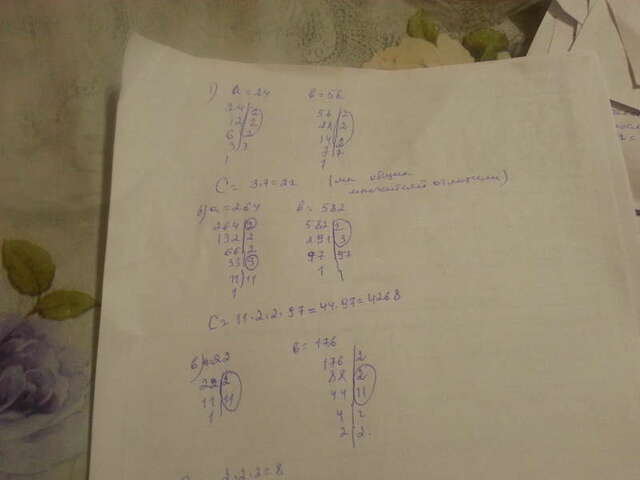 1) a=24 b=56
24 | 2 56 | 2
12 | 2 28 | 2
6 | 2 14 | 2
3 | 3 7 | 7
1 1
C = 3·7=21 (мы общие
множители отметили)
б) a=264 b=582
264 | 2 582 | 2
132 | 2 291 | 3
66 | 2 97 | 97
33 | 3 1
11 | 11
1
C= 11·2·2·97=44·97=4268
в) a=22 b=176
22 | 2 176 | 2
11 | 11 88 | 2
1 44 | 11
4 | 2
2 | 2
2·2·2=8